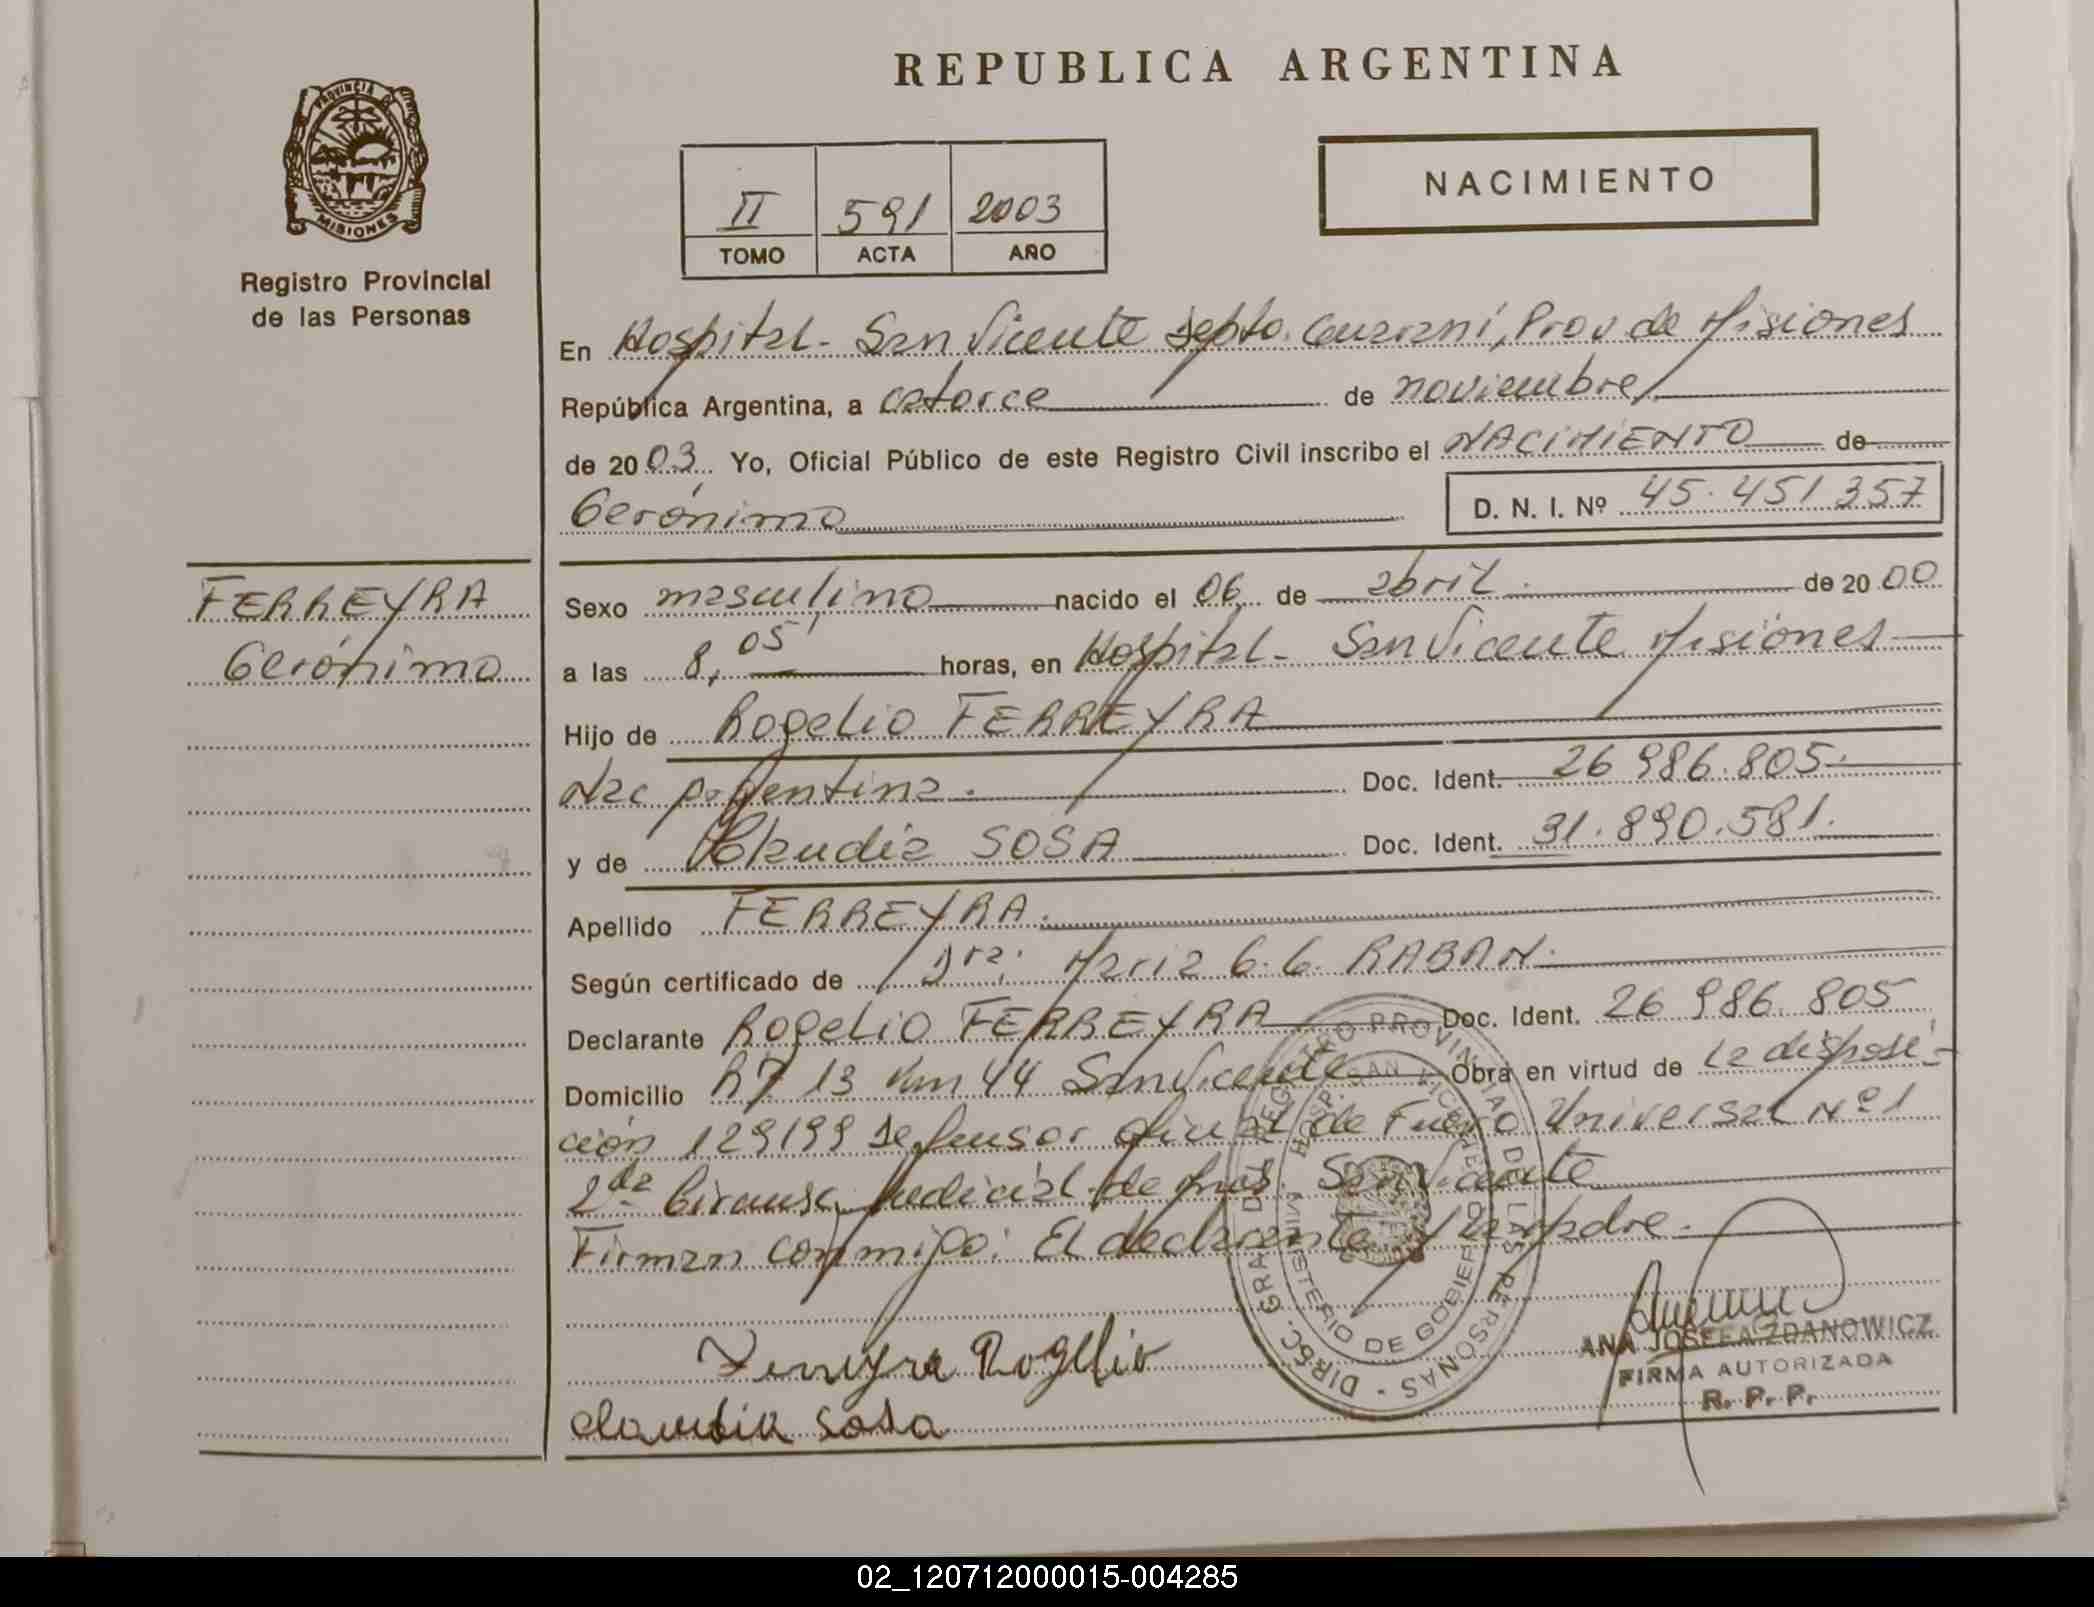 REPUBLICA ARGENTINA
PROVINCIA DE
MISIONES
Registro Provincial
de las Personas
II 591 2003
TOMO ACTA AÑO
NACIMIENTO
En Hospital - San Vicente Depto. Guaraní, Prov de Misiones
República Argentina, a catorce de noviembre
de 2003 Yo, Oficial Público de este Registro Civil inscribo el NACIMIENTO de
Gerónimo D. N. I. Nº 45.451.357
FERREYRA
Gerónimo
Sexo masculino nacido el 06 de abril. de 2000
a las 8,05 horas, en Hospital - San Vicente Misiones
Hijo de Rogelio FERREYRA
Nac Argentina. Doc. Ident. 26 986.805.
y de Claudia SOSA Doc. Ident. 31.890.581.
Apellido FERREYRA.
Según certificado de Dra: Maria G. G. RABAN.
Declarante Rogelio FERREYRA Doc. Ident. 26 986.805
Domicilio R7 13 Km 44 San Vicente Obra en virtud de la disposi-
ción 129199 Defensor oficial de Fuero Universal Nº 1
2da Circunsc. Judicial de San Vicente
Firman conmigo: El declarante y la madre.
Ferreyra Rogelio
Claudia Sosa
DIREC. GRAL. DE REGISTRO PROVINCIAL DE LAS PERSONAS -
HOSP. SAN VICENTE
MINISTERIO DE GOBIERNO
ANA JOSEFA ZDANOWICZ
FIRMA AUTORIZADA
R. P. P.
02_120712000015-004285